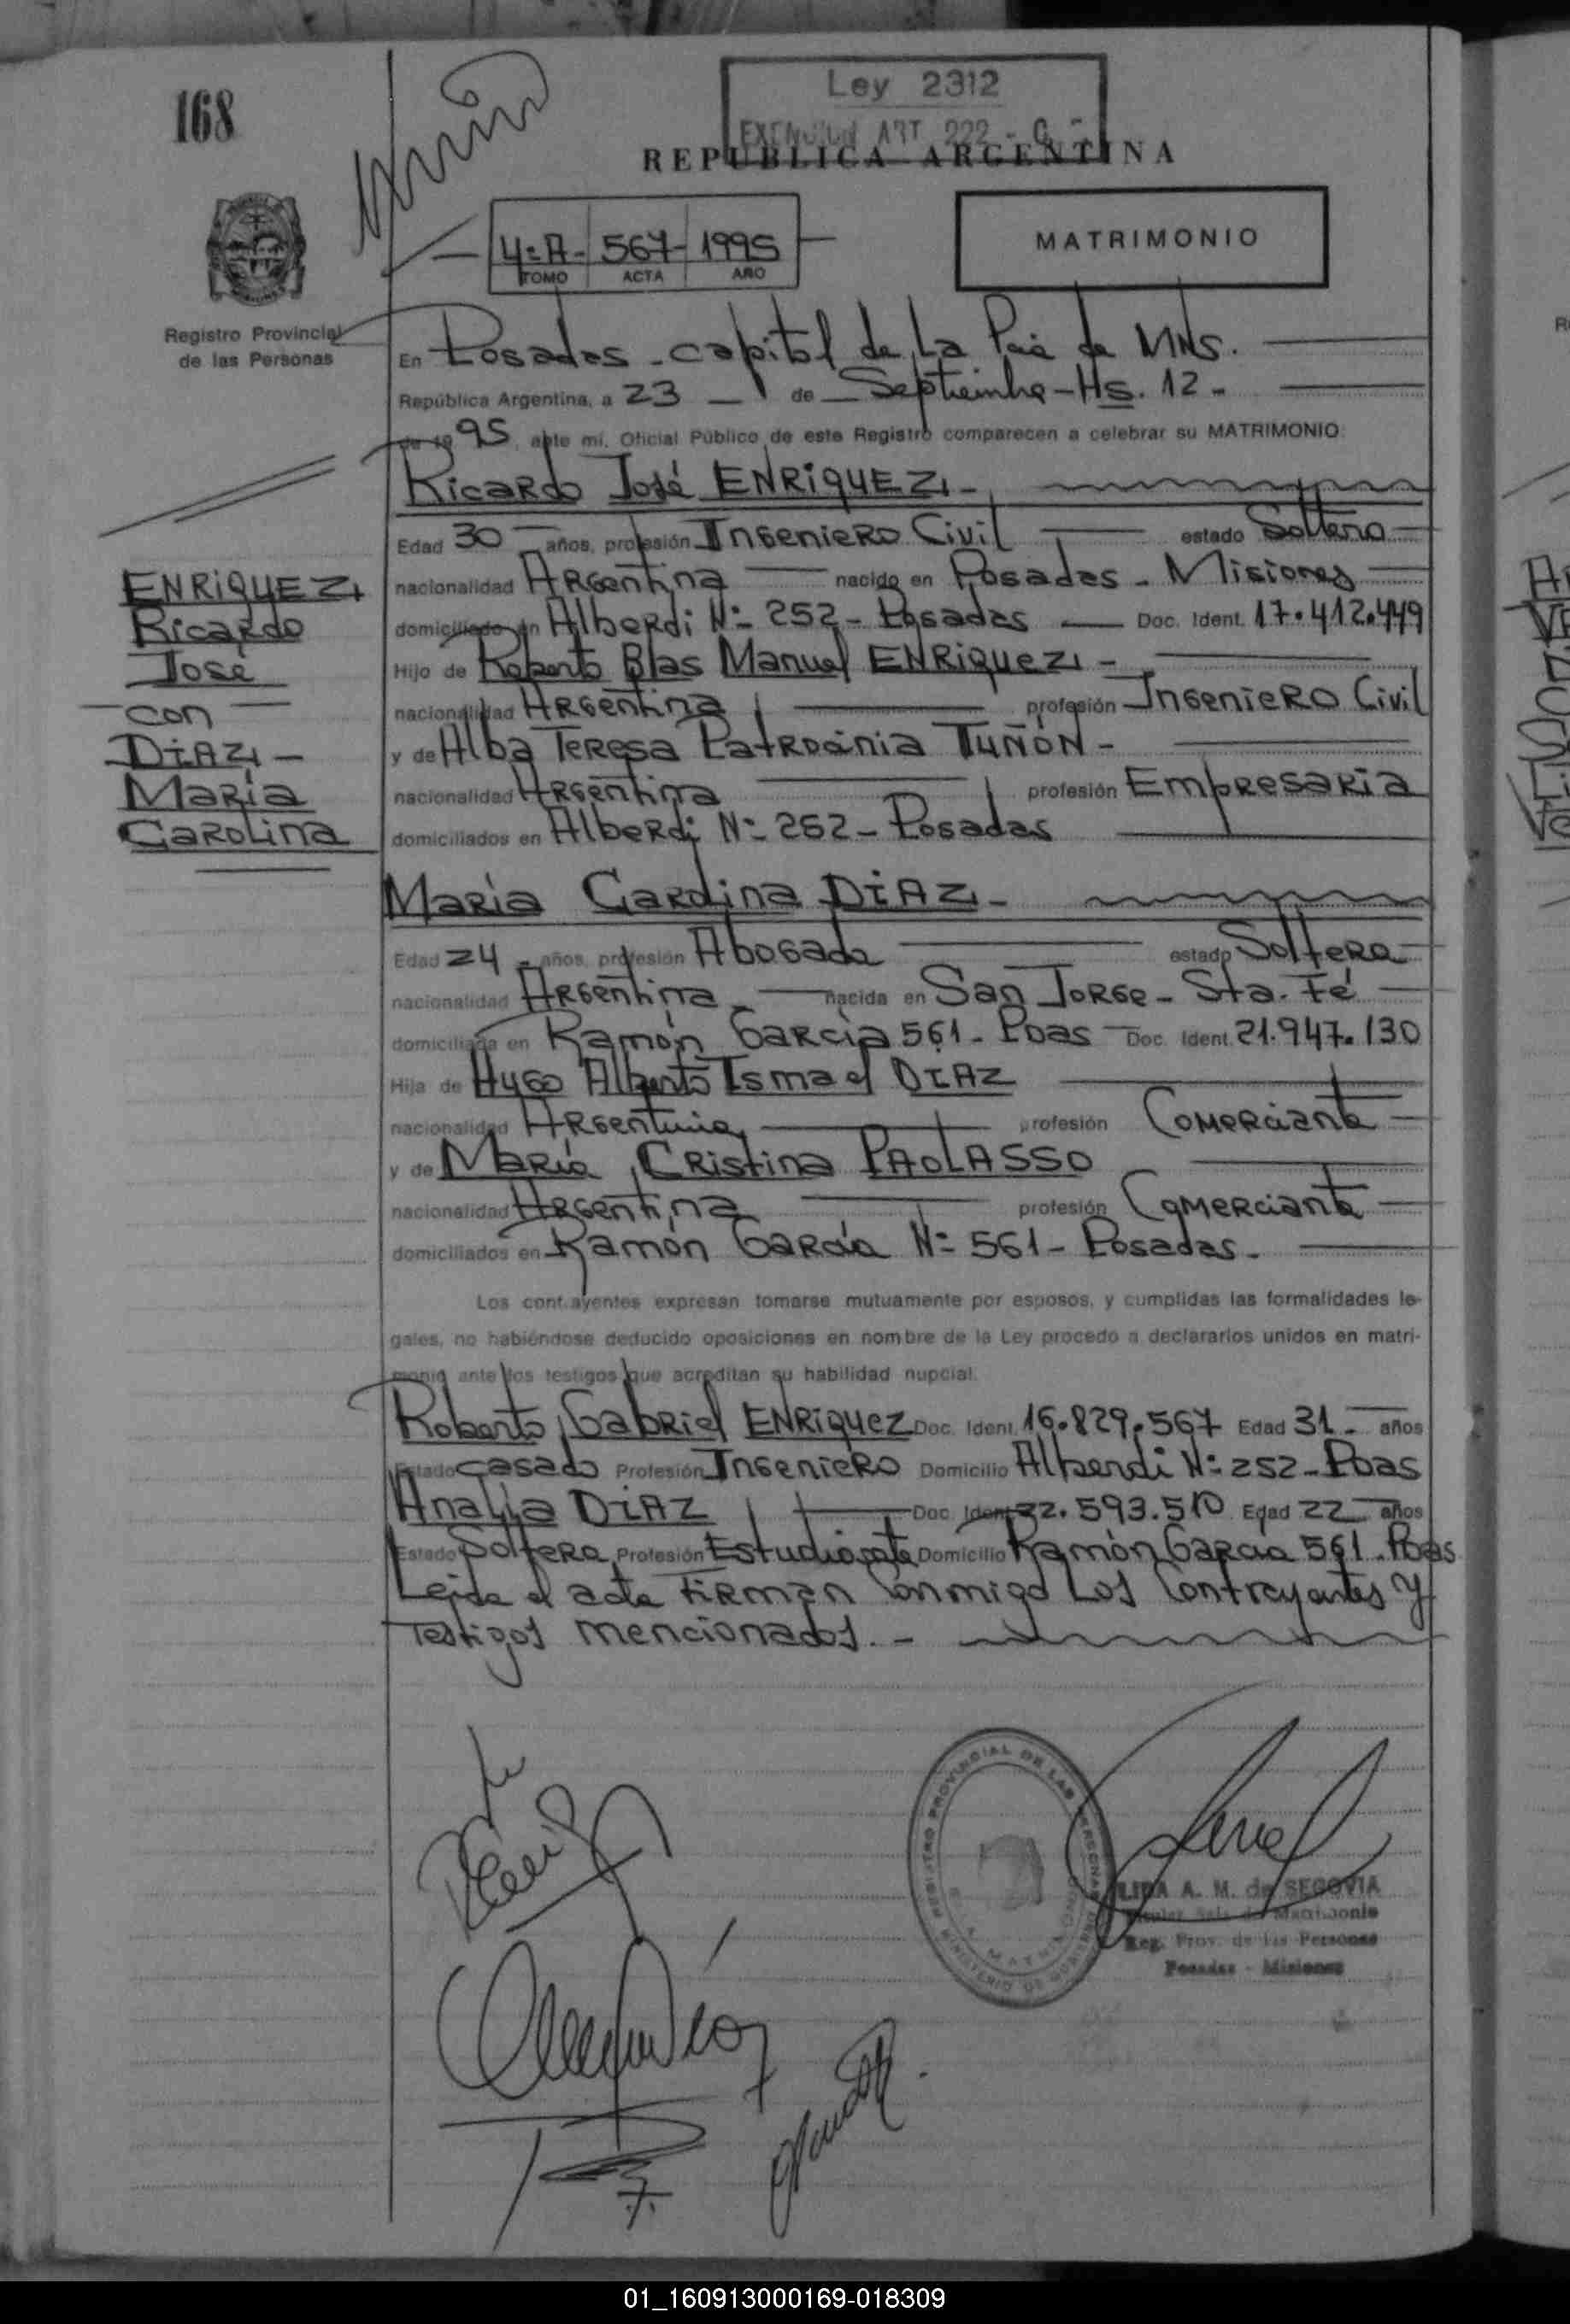 168
Ley 2312
EXENCION ART. 222 - C.
REPUBLICA ARGENTINA
4=A- 567- 1995
TOMO ACTA AÑO
MATRIMONIO
Registro Provincial
de las Personas
En Posadas - capital de La Pcia de MNS.
República Argentina, a 23 - de - Septiembre - Hs. 12 -
de 19 95, ante mí, Oficial Público de este Registro comparecen a celebrar su MATRIMONIO:
Ricardo José ENRIQUEZ -
Edad 30 - años, profesión Ingeniero Civil estado Soltero
nacionalidad Argentina nacido en Posadas - Misiones
domiciliado en Alberdi N= 252 - Posadas - Doc. Ident. 17.412.449
Hijo de Roberto Blas Manuel ENRIQUEZ -
nacionalidad Argentina profesión Ingeniero Civil
y de Alba Teresa Patrocinia TUÑÓN -
nacionalidad Argentina profesión Empresaria
domiciliados en Alberdi N= 252 - Posadas
ENRIQUEZ
Ricardo
José
- con -
DIAZ -
María
Carolina
María Carolina DIAZ -
Edad 24 - años, profesión Abogada estado Soltera
nacionalidad Argentina - nacida en San Jorge - Sta. Fé
domiciliada en Ramón García 561 - Pdas - Doc. Ident. 21.947.130
Hija de Hugo Alberto Ismael DIAZ
nacionalidad Argentina profesión Comerciante
y de María Cristina PAOLASSO
nacionalidad Argentina profesión Comerciante
domiciliados en Ramón García N= 561 - Posadas -
Los contrayentes expresan tomarse mutuamente por esposos, y cumplidas las formalidades le-
gales, no habiéndose deducido oposiciones en nombre de la Ley procedo a declararlos unidos en matri-
monio ante los testigos que acreditan su habilidad nupcial.
Roberto Gabriel ENRIQUEZ Doc. Ident. 16.829.567 Edad 31 - años
Estado casado Profesión Ingeniero Domicilio Alberdi N= 252 - Pdas
Analía DIAZ Doc. Ident. 22.593.510 Edad 22 años
Estado Soltera Profesión Estudiante Domicilio Ramón García 561 - Pdas
Leida el acta firman conmigo Los Contrayentes y
Testigos mencionados. -
REGISTRO PROVINCIAL DE LAS PERSONAS
MINISTERIO DE GOBIERNO
LIDA A. M. de SEGOVIA
Reg. Prov. de las Personas
Posadas - Misiones
01_160913000169-018309